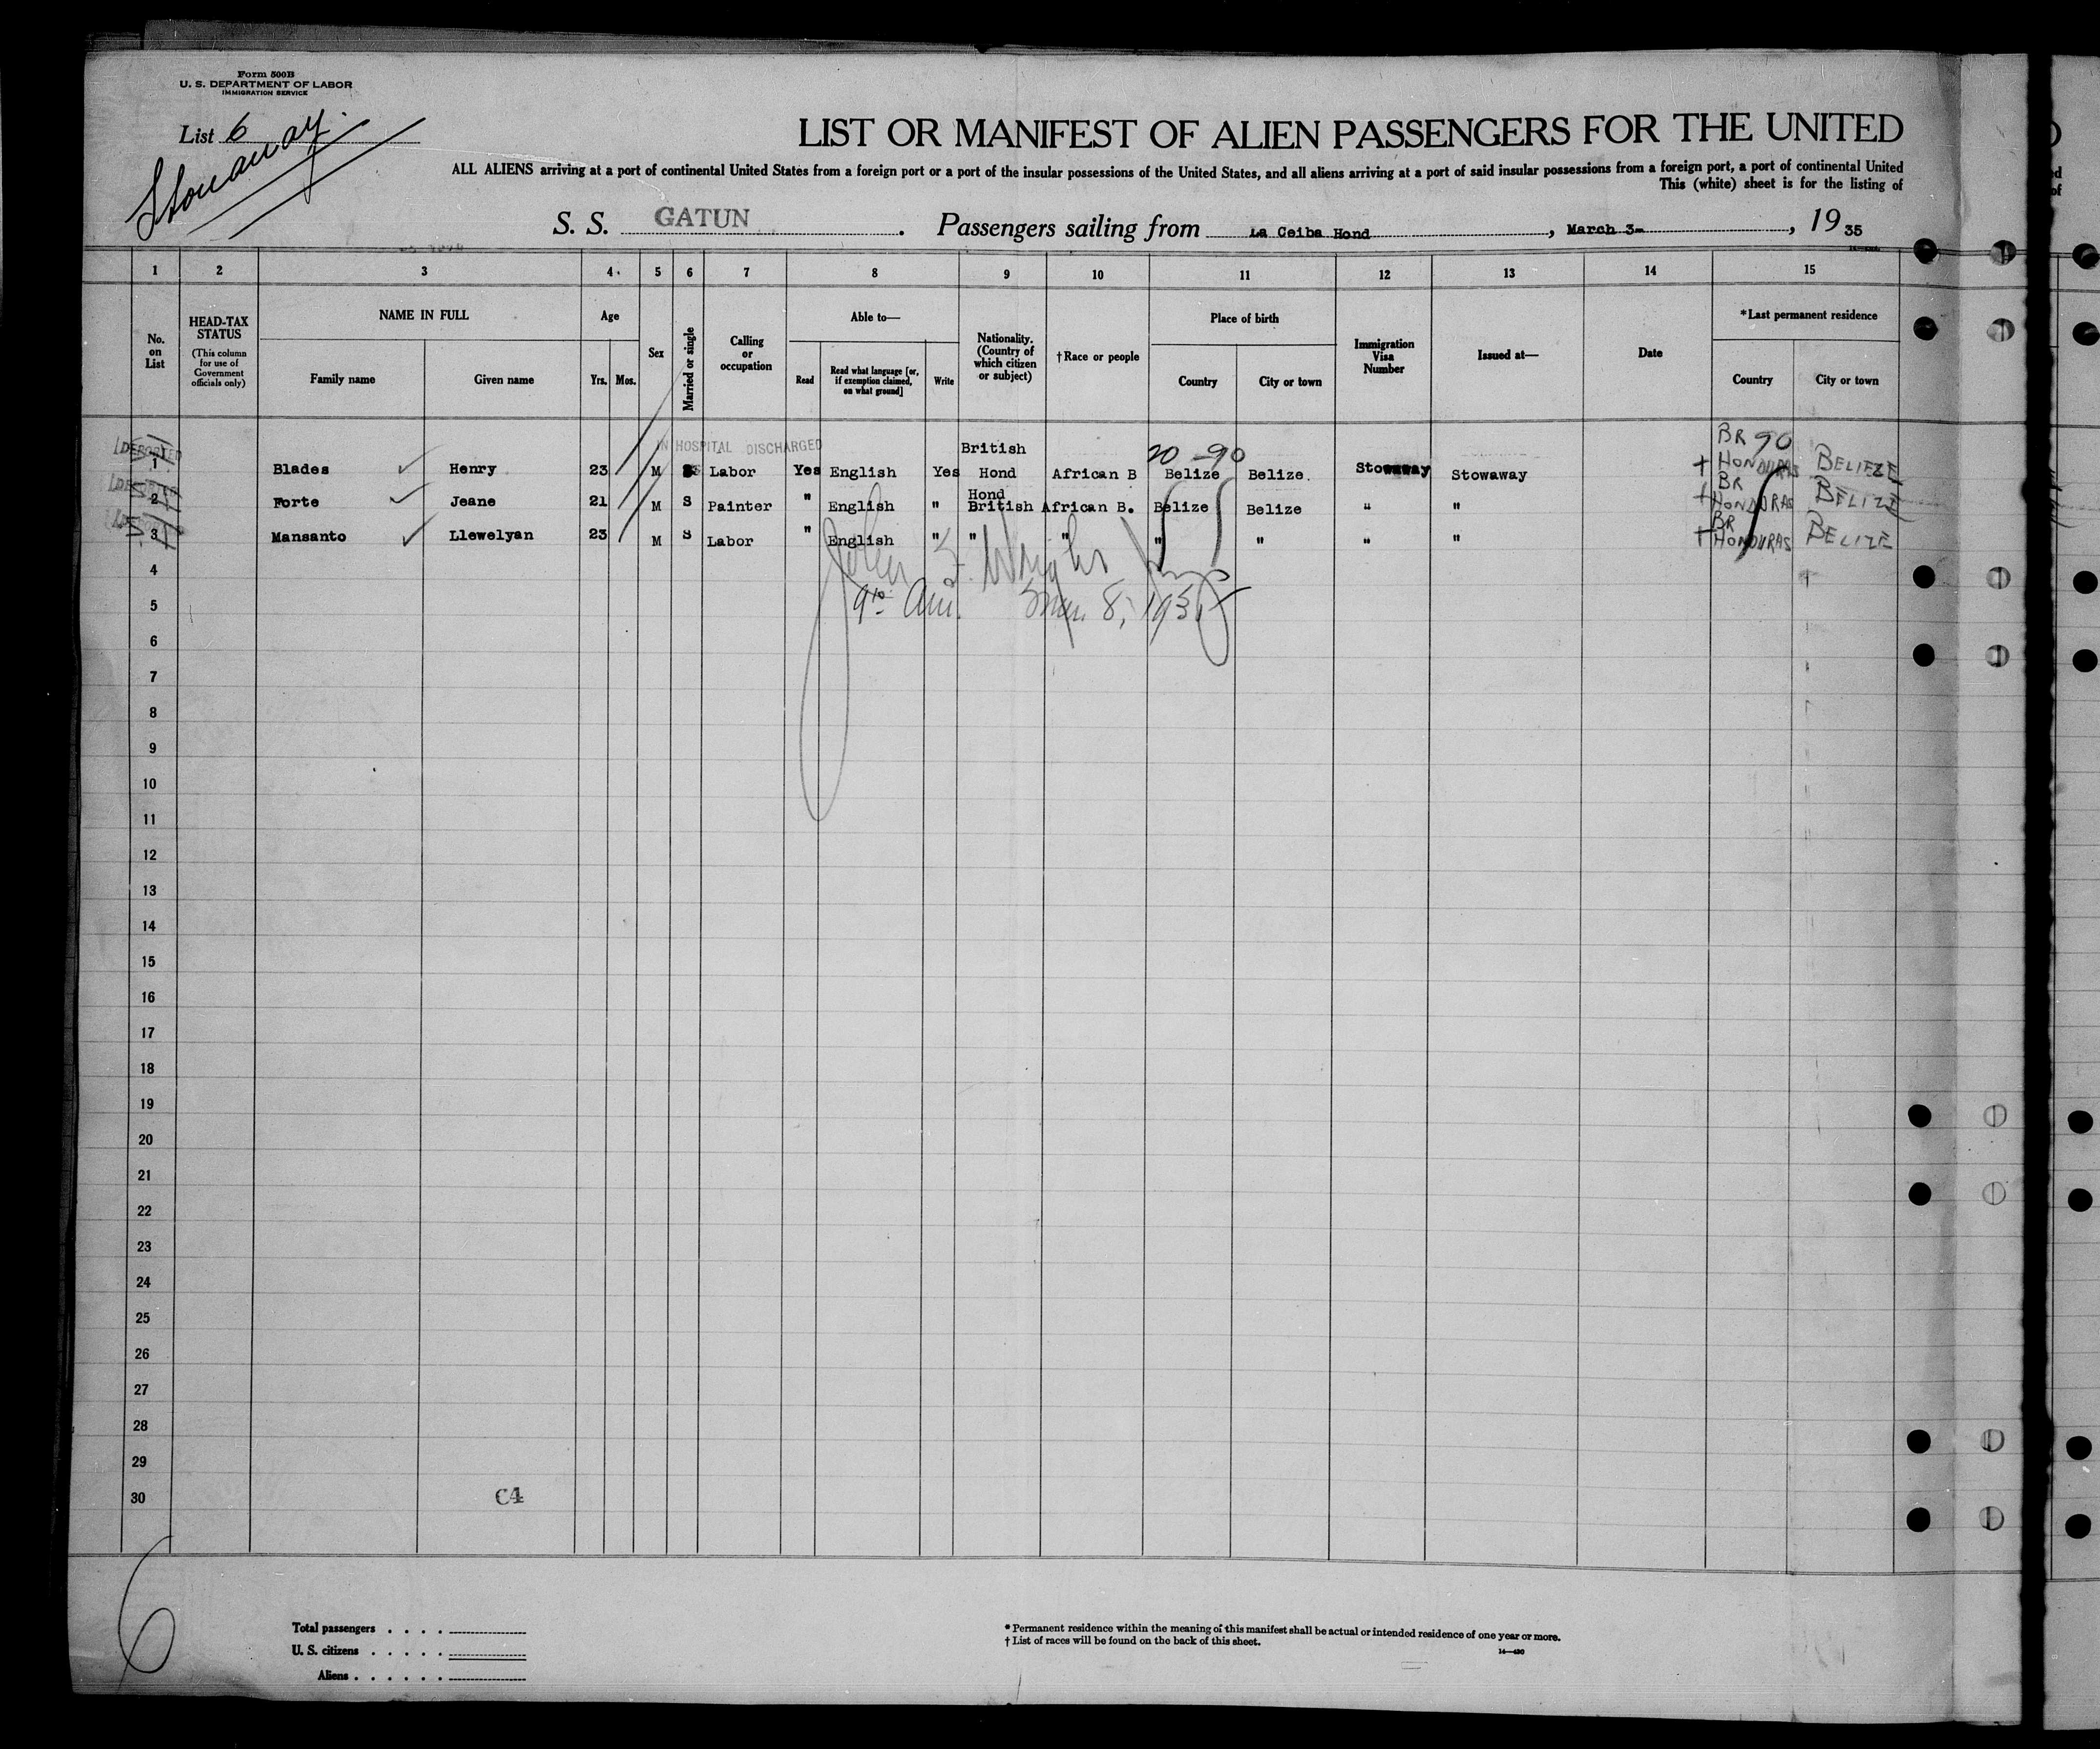 Form 500B
U. S. DEPARTMENT OF LABOR
IMMIGRATION SERVICE
List 6
Stowaway.
LIST OR MANIFEST OF ALIEN PASSENGERS FOR THE UNITED
ALL ALIENS arriving at a port of continental United States from a foreign port or a port of the insular possessions of the United States, and all aliens arriving at a port of said insular possessions from a foreign port, a port of continental United
This (white) sheet is for the listing of
S. S. GATUN. Passengers sailing from La Ceiba Hond, March 3-, 1935
1 2 3 4 5 6 7 8 9 10 11 12 13 14 15
No. on List
HEAD-TAX STATUS (This column for use of Government officials only)
NAME IN FULL
Family name Given name
Age
Yrs. Mos.
Sex
Married or single
Calling or occupation
Able to—
Read Read what language [or, if exemption claimed, on what ground] Write
Nationality. (Country of which citizen or subject)
†Race or people
Place of birth
Country City or town
Immigration Visa Number
Issued at—
Date
*Last permanent residence
Country City or town
IN HOSPITAL DISCHARGED
DEPORTED
20 -90
90
1 Blades Henry 23 M S Labor Yes English Yes British Hond African B Belize Belize. Stowaway Stowaway BR HONDURAS BELIEZE
2 Forte Jeane 21 M S Painter " English " Hond British African B. Belize Belize " " BR HONDURAS BELIZE
3 Mansanto Llewelyan 23 M S Labor " English " " " " " " " BR HONDURAS BELIZE
9 10 Am. Mar. 8, 1935
4
5
6
7
8
9
10
11
12
13
14
15
16
17
18
19
20
21
22
23
24
25
26
27
28
29
30
C4
6
Total passengers . . . .
U. S. citizens . . . . .
Aliens . . . . . .
* Permanent residence within the meaning of this manifest shall be actual or intended residence of one year or more.
† List of races will be found on the back of this sheet.
14—430